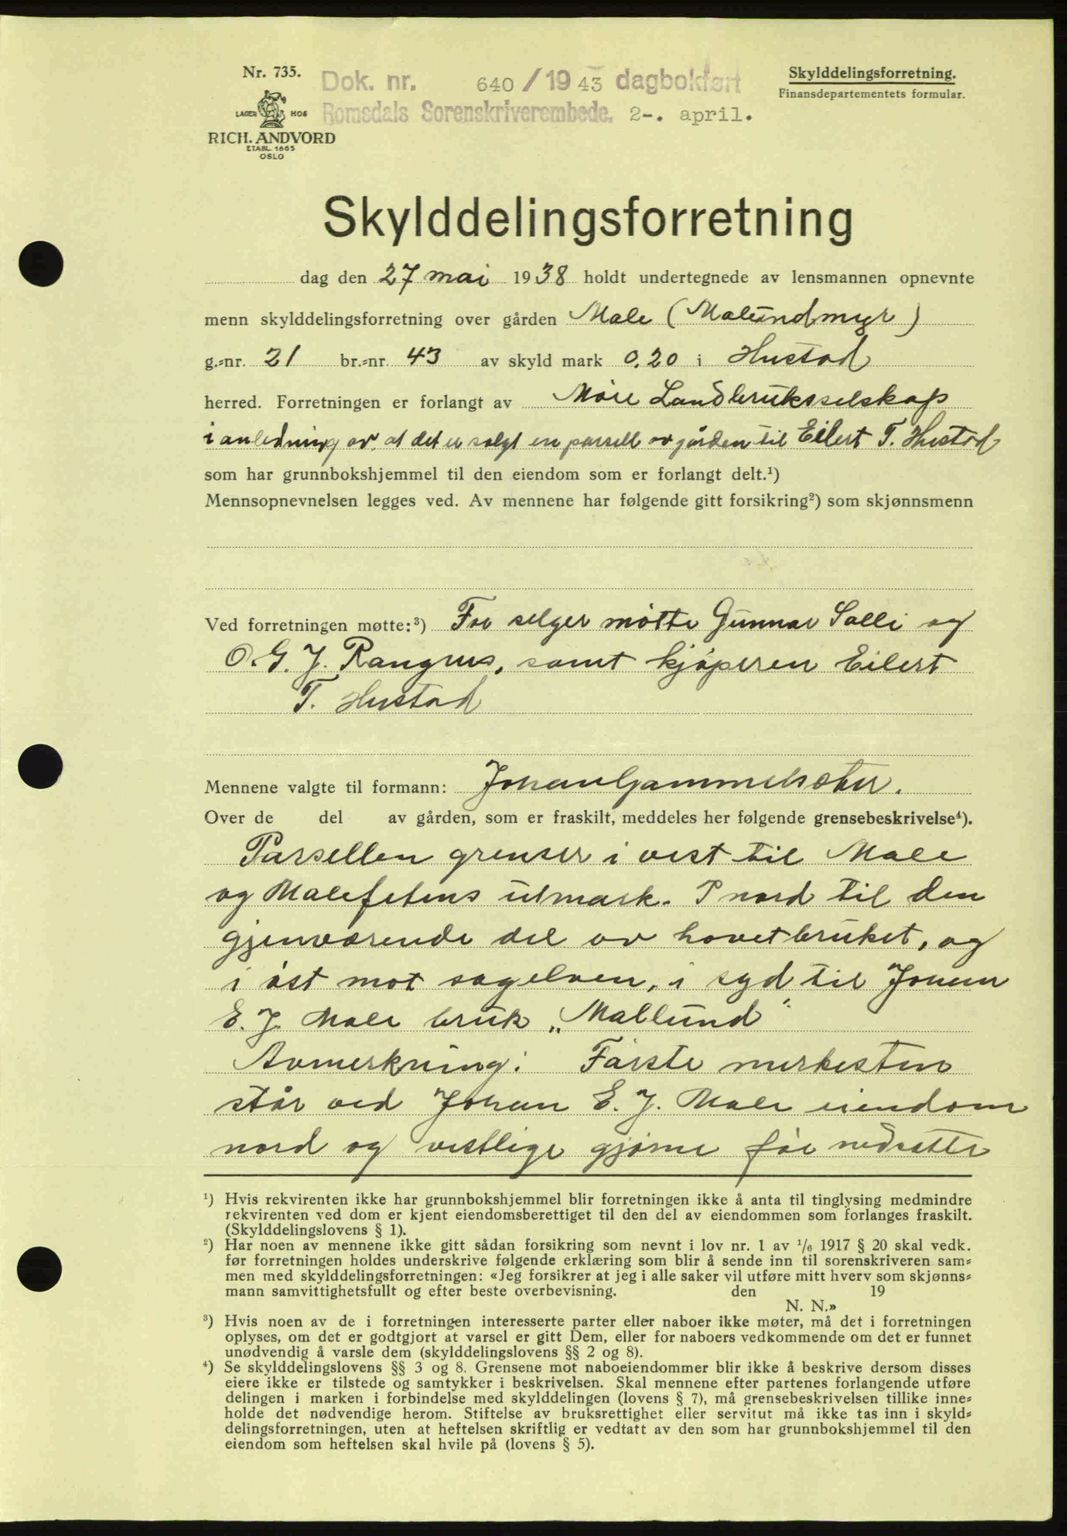 Nr. 735.
Dok. nr. 640 / 1943 dagbokført
Romsdals Sorenskriverembede. 2-. april.
Skylddelingsforretning.
Finansdepartementets formular.
LAGER HOS
RICH. ANDVORD
ETABL. 1865
OSLO
Skylddelingsforretning
dag den 27 mai 1938 holdt undertegnede av lensmannen opnevnte
menn skylddelingsforretning over gården Male (Malundmyr)
g.-nr. 21 br.-nr. 43 av skyld mark 0.20 i Hustad
herred. Forretningen er forlangt av Møre Landbruksselskap
i anledning av at det er solgt en parsell av gården til Eilert T. Hustad
som har grunnbokshjemmel til den eiendom som er forlangt delt.¹)
Mennsopnevnelsen legges ved. Av mennene har følgende gitt forsikring²) som skjønnsmenn
Ved forretningen møtte:³) For selger møtte Gunnar Salli og
O. G. J. Rangnes, samt kjøperen Eilert
T. Hustad
Mennene valgte til formann: Johan Gammelsæter.
Over de del av gården, som er fraskilt, meddeles her følgende grensebeskrivelse⁴).
Parsellen grenser i vest til Male
og Malefetens utmark. I nord til den
gjenværende del av hovetbruket, og
i øst mot sagelven, i syd til Johan
E. J. Male bruk „Mallund"
Avmerkning: Første merkesten
står ved Johan E. J. Male eiendom
nord og vestlige gjørne før nedsatte
¹) Hvis rekvirenten ikke har grunnbokshjemmel blir forretningen ikke å anta til tinglysing medmindre
rekvirenten ved dom er kjent eiendomsberettiget til den del av eiendommen som forlanges fraskilt.
(Skylddelingslovens § 1).
²) Har noen av mennene ikke gitt sådan forsikring som nevnt i lov nr. 1 av 1/6 1917 § 20 skal vedk.
før forretningen holdes underskrive følgende erklæring som blir å sende inn til sorenskriveren sam-
men med skylddelingsforretningen: «Jeg forsikrer at jeg i alle saker vil utføre mitt hverv som skjønns-
mann samvittighetsfullt og efter beste overbevisning. den 19
N. N.»
³) Hvis noen av de i forretningen interesserte parter eller naboer ikke møter, må det i forretningen
oplyses, om det er godtgjort at varsel er gitt Dem, eller for naboers vedkommende om det er funnet
unødvendig å varsle dem (skylddelingslovens §§ 2 og 8).
⁴) Se skylddelingslovens §§ 3 og 8. Grensene mot naboeiendommer blir ikke å beskrive dersom disses
eiere ikke er tilstede og samtykker i beskrivelsen. Skal mennene efter partenes forlangende utføre
delingen i marken i forbindelse med skylddelingen (lovens § 7), må grensebeskrivelsen tillike inne-
holde det nødvendige herom. Stiftelse av bruksrettighet eller servitut må ikke tas inn i skyld-
delingsforretningen, uten at heftelsen skriftlig er vedtatt av den som har grunnbokshjemmel til den
eiendom som heftelsen skal hvile på (lovens § 5).